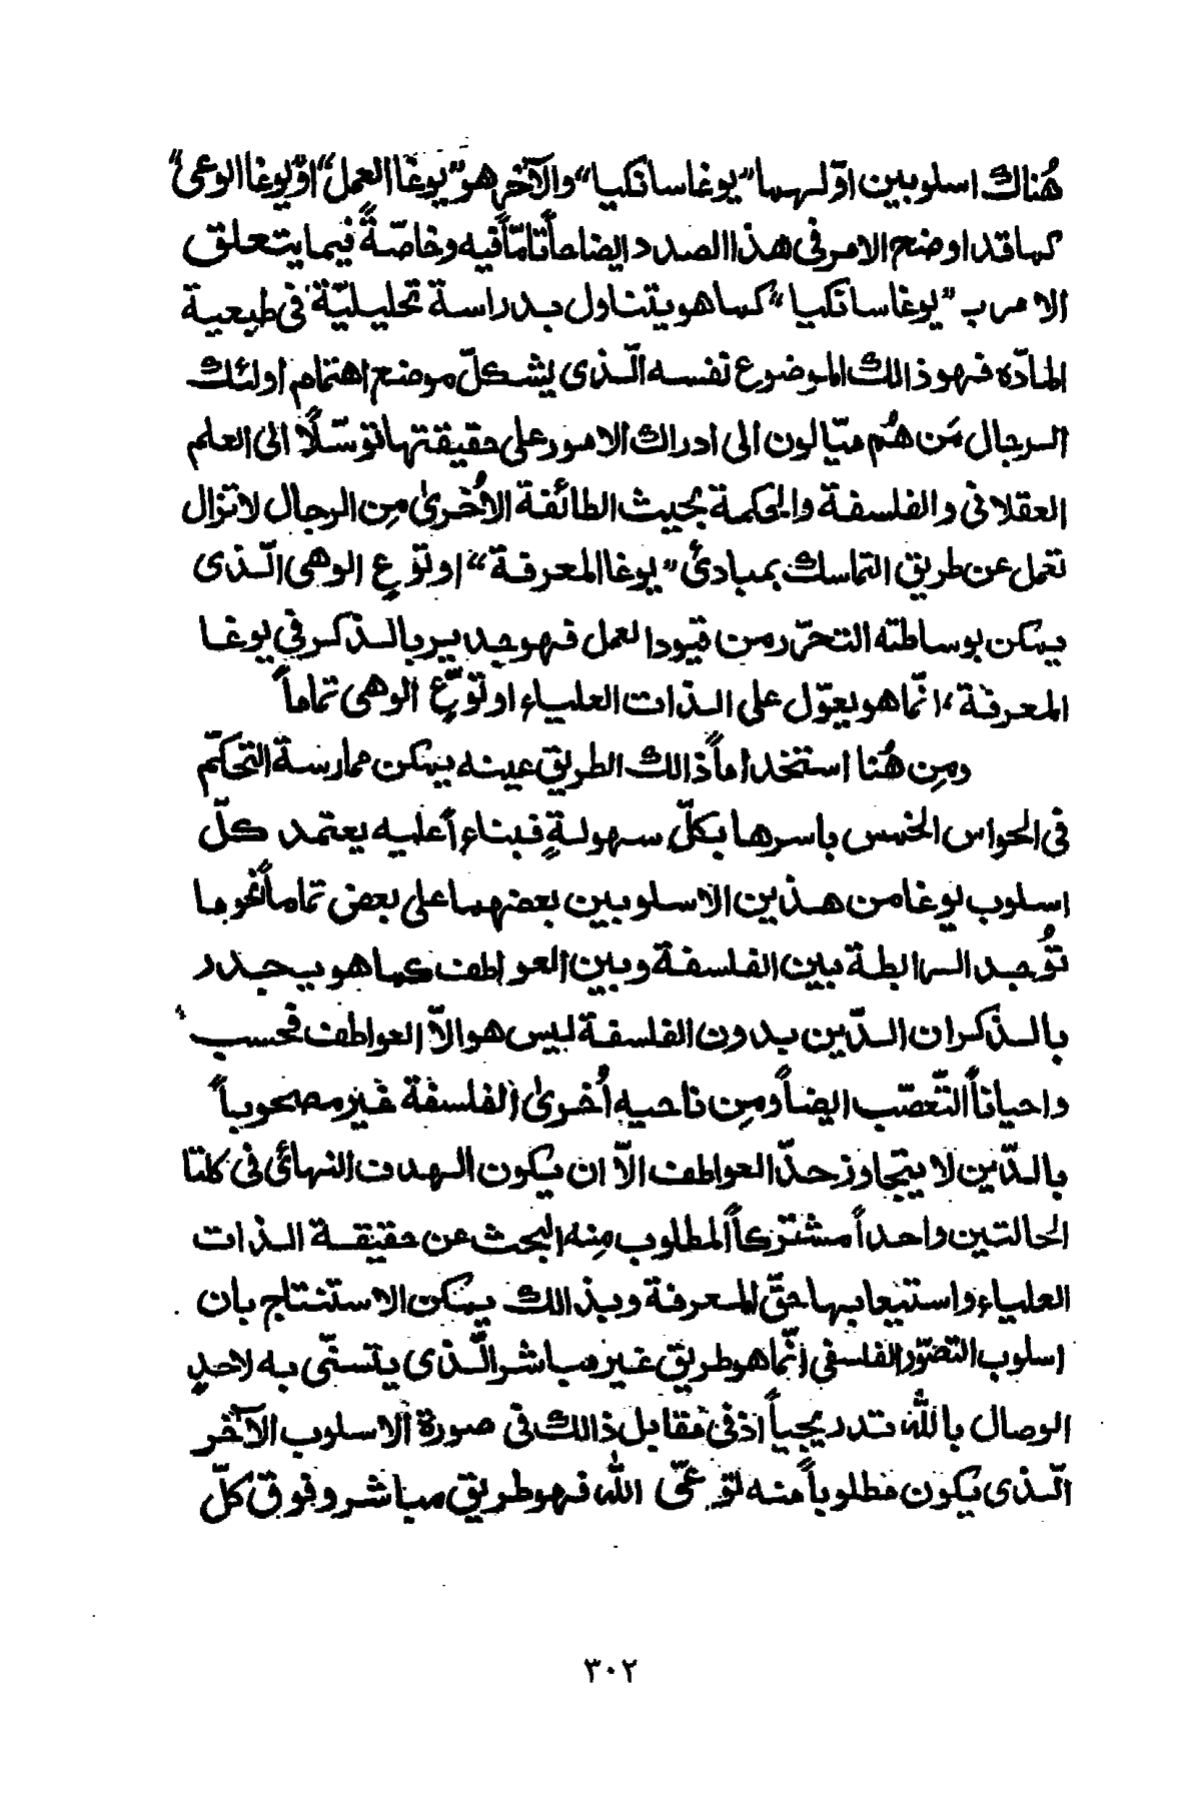 هُناك اسلوبين اوّلهما "يوغاسانكيا" والآخر هو "يوغا العمل" او "يوغا الوعى"
كما قد اوضح الامر فى هذا الصدد ايضاحاً تامّاً فيه وخاصّةً فيما يتعلق
الامر ب "يوغاسانكيا" كما هو يتناول بدراسة تحليليّة فى طبعية
المادّه فهو ذالك الموضوع نفسه الّذى يشكلّ موضع اهتمام اولئك
الرجال مَن هُم ميّالون الى ادراك الامور على حقيقتها توسّلًا الى العلم
العقلانى والفلسفة والحكمة بحيث الطائفة الاُخرىٰ مِن الرجال لاتزال
تعمل عن طريق التماسك بمبادئ "يوغا المعرفة" او توّعِ الوهى الّذى
يمكن بوساطته التحرّر من قيود العمل فهو جدير بالذكر في يوغا
المعرفة، انّما هو يعوّل على الذات العلياء او توّعِ الوهى تماماً
ومِن هُنا استخداماً ذالك الطريق عينه يمكن ممارسة التحكمّ
فى الحواس الخمس باسرها بكلّ سهولةٍ فبناء أعليه يعتمد كلّ
اسلوب يوغا من هذين الاسلوبين بعضهما على بعض تماماً نحوما
تُوجد الرابطة بين الفلسفة وبين العواطف كما هو يجدر
بالذكران الدّين بدون الفلسفة ليس هو الاّ العواطف فحسب
واحياناً التّعصّب ايضاً ومِن ناحيه اُخرىٰ الفلسفة غير مصحوباً
بالدّين لا يتجاوز حدّ العواطف الاّ ان يكون الهدف النهائى فى كلتا
الحالتين واحداً مشتركاً المطلوب مِنه البحث عن حقيقة الذات
العلياء واستيعابها حقّ المعرفة وبذالك يمكن الاستنتاج بان
اسلوب التصوّر الفلسفى انّما هو طريق غير مباشر الّذى يتسنّى به لاحدٍ
الوصال بالله تدريجياً اذ فى مقابل ذالك فى صورة الاسلوب الآخر
الّذى يكون مطلوباً منه لتوعّى الله فهو طريق مباشر وفوق كلّ
٣٠٢